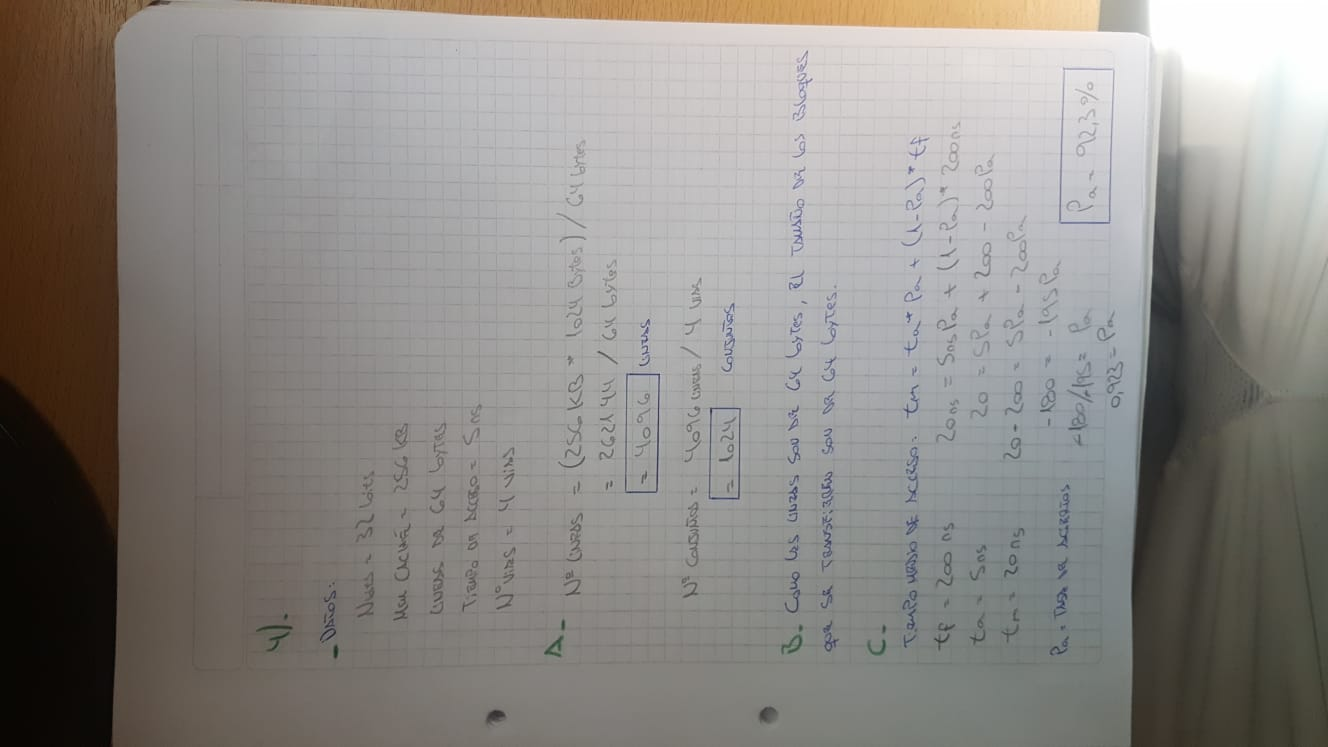 4).
- DATOS:
Nbits = 32 bits
Mem CACHÉ = 256 KB
LINEAS DE 64 bytes
TIEMPO DE ACCESO = 5 ns
Nº VIAS = 4 VIAS
A-
Nº LINEAS = (256 KB * 1024 bytes) / 64 bytes
= 262144 / 64 bytes
= 4096 LINEAS
Nº CONJUNTOS = 4096 LINEAS / 4 VIAS
= 1024 CONJUNTOS
B- COMO LAS LINEAS SON DE 64 bytes, EL TAMAÑO DE LOS BLOQUES
QUE SE TRANSFERIRÁN SON DE 64 bytes.
C-
TIEMPO MEDIO DE ACCESO: tm = ta * Pa + (1-Pa) * tf
tf = 200 ns 20ns = 5nsPa + (1-Pa) * 200ns
ta = 5ns 20 = 5Pa + 200 - 200Pa
tm = 20ns 20 - 200 = 5Pa - 200Pa
-180 = -195Pa
Pa = TASA DE ACIERTOS -180/-195 = Pa
0,923 = Pa
Pa = 92,3%